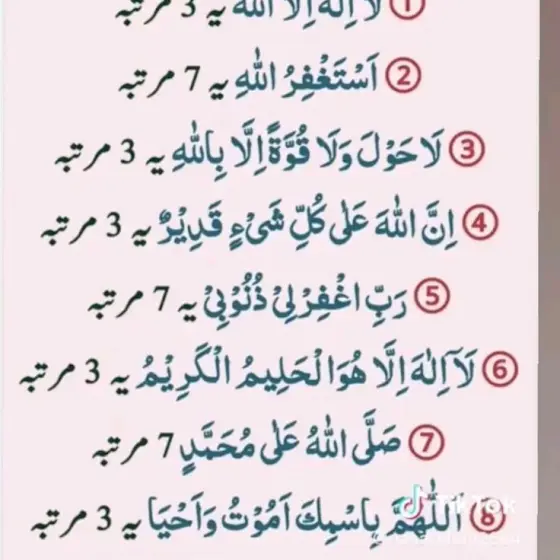 ① لَا اِلٰهَ اِلَّا اللّٰه یہ 3 مرتبہ
② اَسْتَغْفِرُ اللّٰهِ یہ 7 مرتبہ
③ لَا حَوْلَ وَلَا قُوَّةً اِلَّا بِاللّٰهِ یہ 3 مرتبہ
④ اِنَّ اللّٰهَ عَلٰی كُلِّ شَیْءٍ قَدِیْرٌ یہ 3 مرتبہ
⑤ رَبِّ اغْفِرْ لِیْ ذُنُوْبِیْ یہ 7 مرتبہ
⑥ لَآ اِلٰهَ اِلَّا هُوَ الْحَلِیمُ الْكَرِیْمُ یہ 3 مرتبہ
⑦ صَلَّی اللّٰهُ عَلٰی مُحَمَّدٍ 7 مرتبہ
⑧ اَللّٰهُمَّ بِاسْمِكَ اَمُوْتُ وَاَحْیَا یہ 3 مرتبہ
TikTok